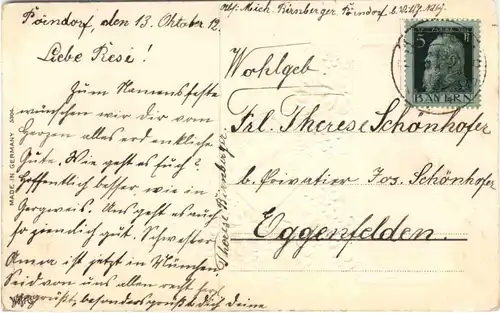 Pörndorf, den 13. Oktober 12.
Liebe Resi!
Zum Namensfeste
wünschen wir dir vom
Herzen alles erdenkliche
Gute. Wie geht es Euch?
Hoffentlich besser, wie in
Gergweis. Uns geht es auch
so ziemlich gut. Schwester
Anna ist jetzt in München
Seid von uns allen recht herz
gegrüßt, besonders grüßt dich deine
Therese Birnberger
MADE IN GERMANY
Abs. Mich. Birnberger, Pörndorf
Wohlgeb.
Frl. Therese Schönhofer
b. Privatier Jos. Schönhofer
Eggenfelden.
5 Pf
BAYERN